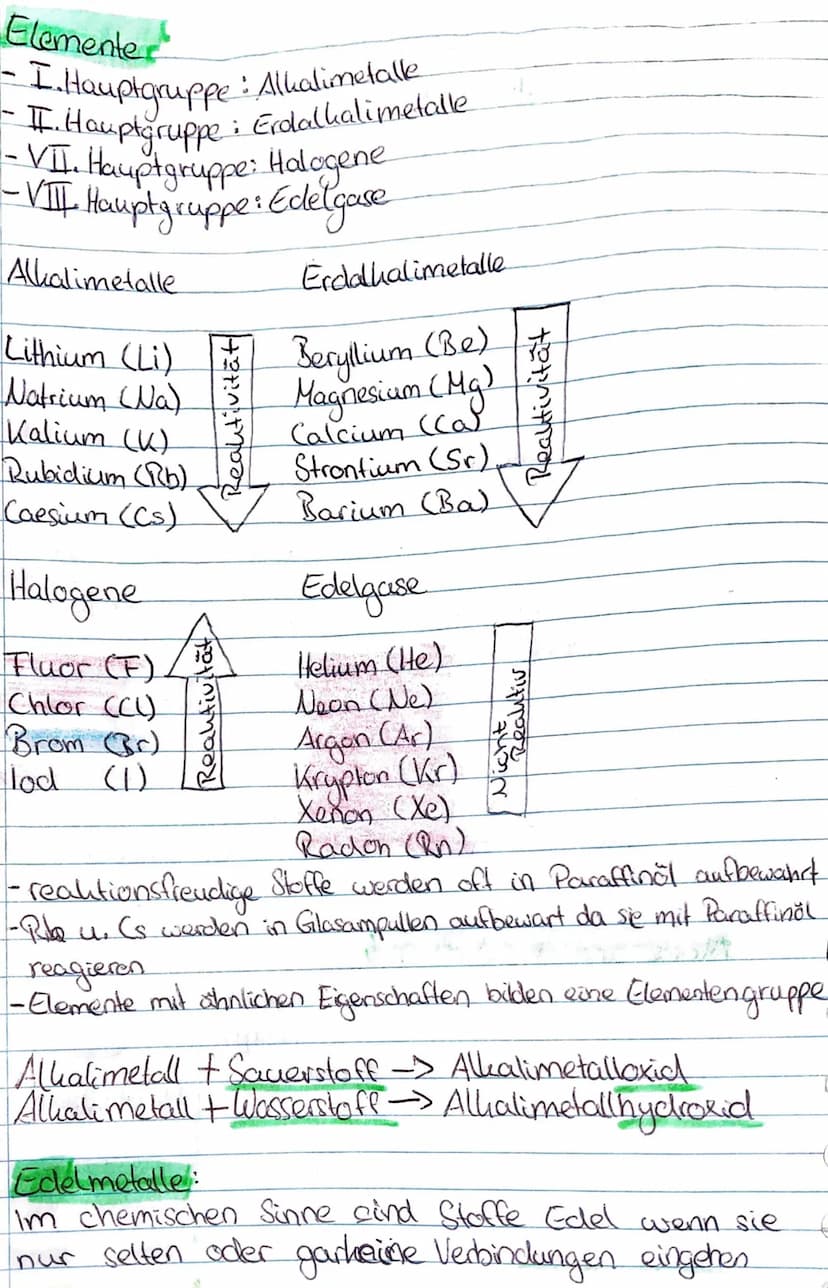 Elemente
- I. Hauptgruppe: Alkalimetalle
- II. Hauptgruppe: Erdalkalimetalle
- VII. Hauptgruppe: Halogene
- VIII. Hauptgruppe: Edelgase
Alkalimetalle
Lithium (Li)
Natrium (Na)
Kalium (K)
Rubidium (Rb)
Caesium (Cs)
Reaktivität
Erdalkalimetalle
Beryllium (Be)
Magnesium (Mg)
Calcium (Ca)
Strontium (Sr)
Barium (Ba)
Reaktivität
Halogene
Fluor (F)
Chlor (Cl)
Brom (Br)
Iod (I)
Reaktivität
Edelgase
Helium (He)
Neon (Ne)
Argon (Ar)
Krypton (Kr)
Xenon (Xe)
Radon (Rn)
Nicht
Reaktiv
- reaktionsfreudige Stoffe werden oft in Paraffinöl aufbewahrt
- Rb u. Cs werden in Glasampullen aufbewart da sie mit Paraffinöl
reagieren
- Elemente mit ähnlichen Eigenschaften bilden eine Elementengruppe
Alkalimetall + Sauerstoff -> Alkalimetalloxid
Alkalimetall + Wasserstoff -> Alkalimetallhydroxid
Edelmetalle:
Im chemischen Sinne sind Stoffe Edel wenn sie
nur selten oder garkeine Verbindungen eingehen